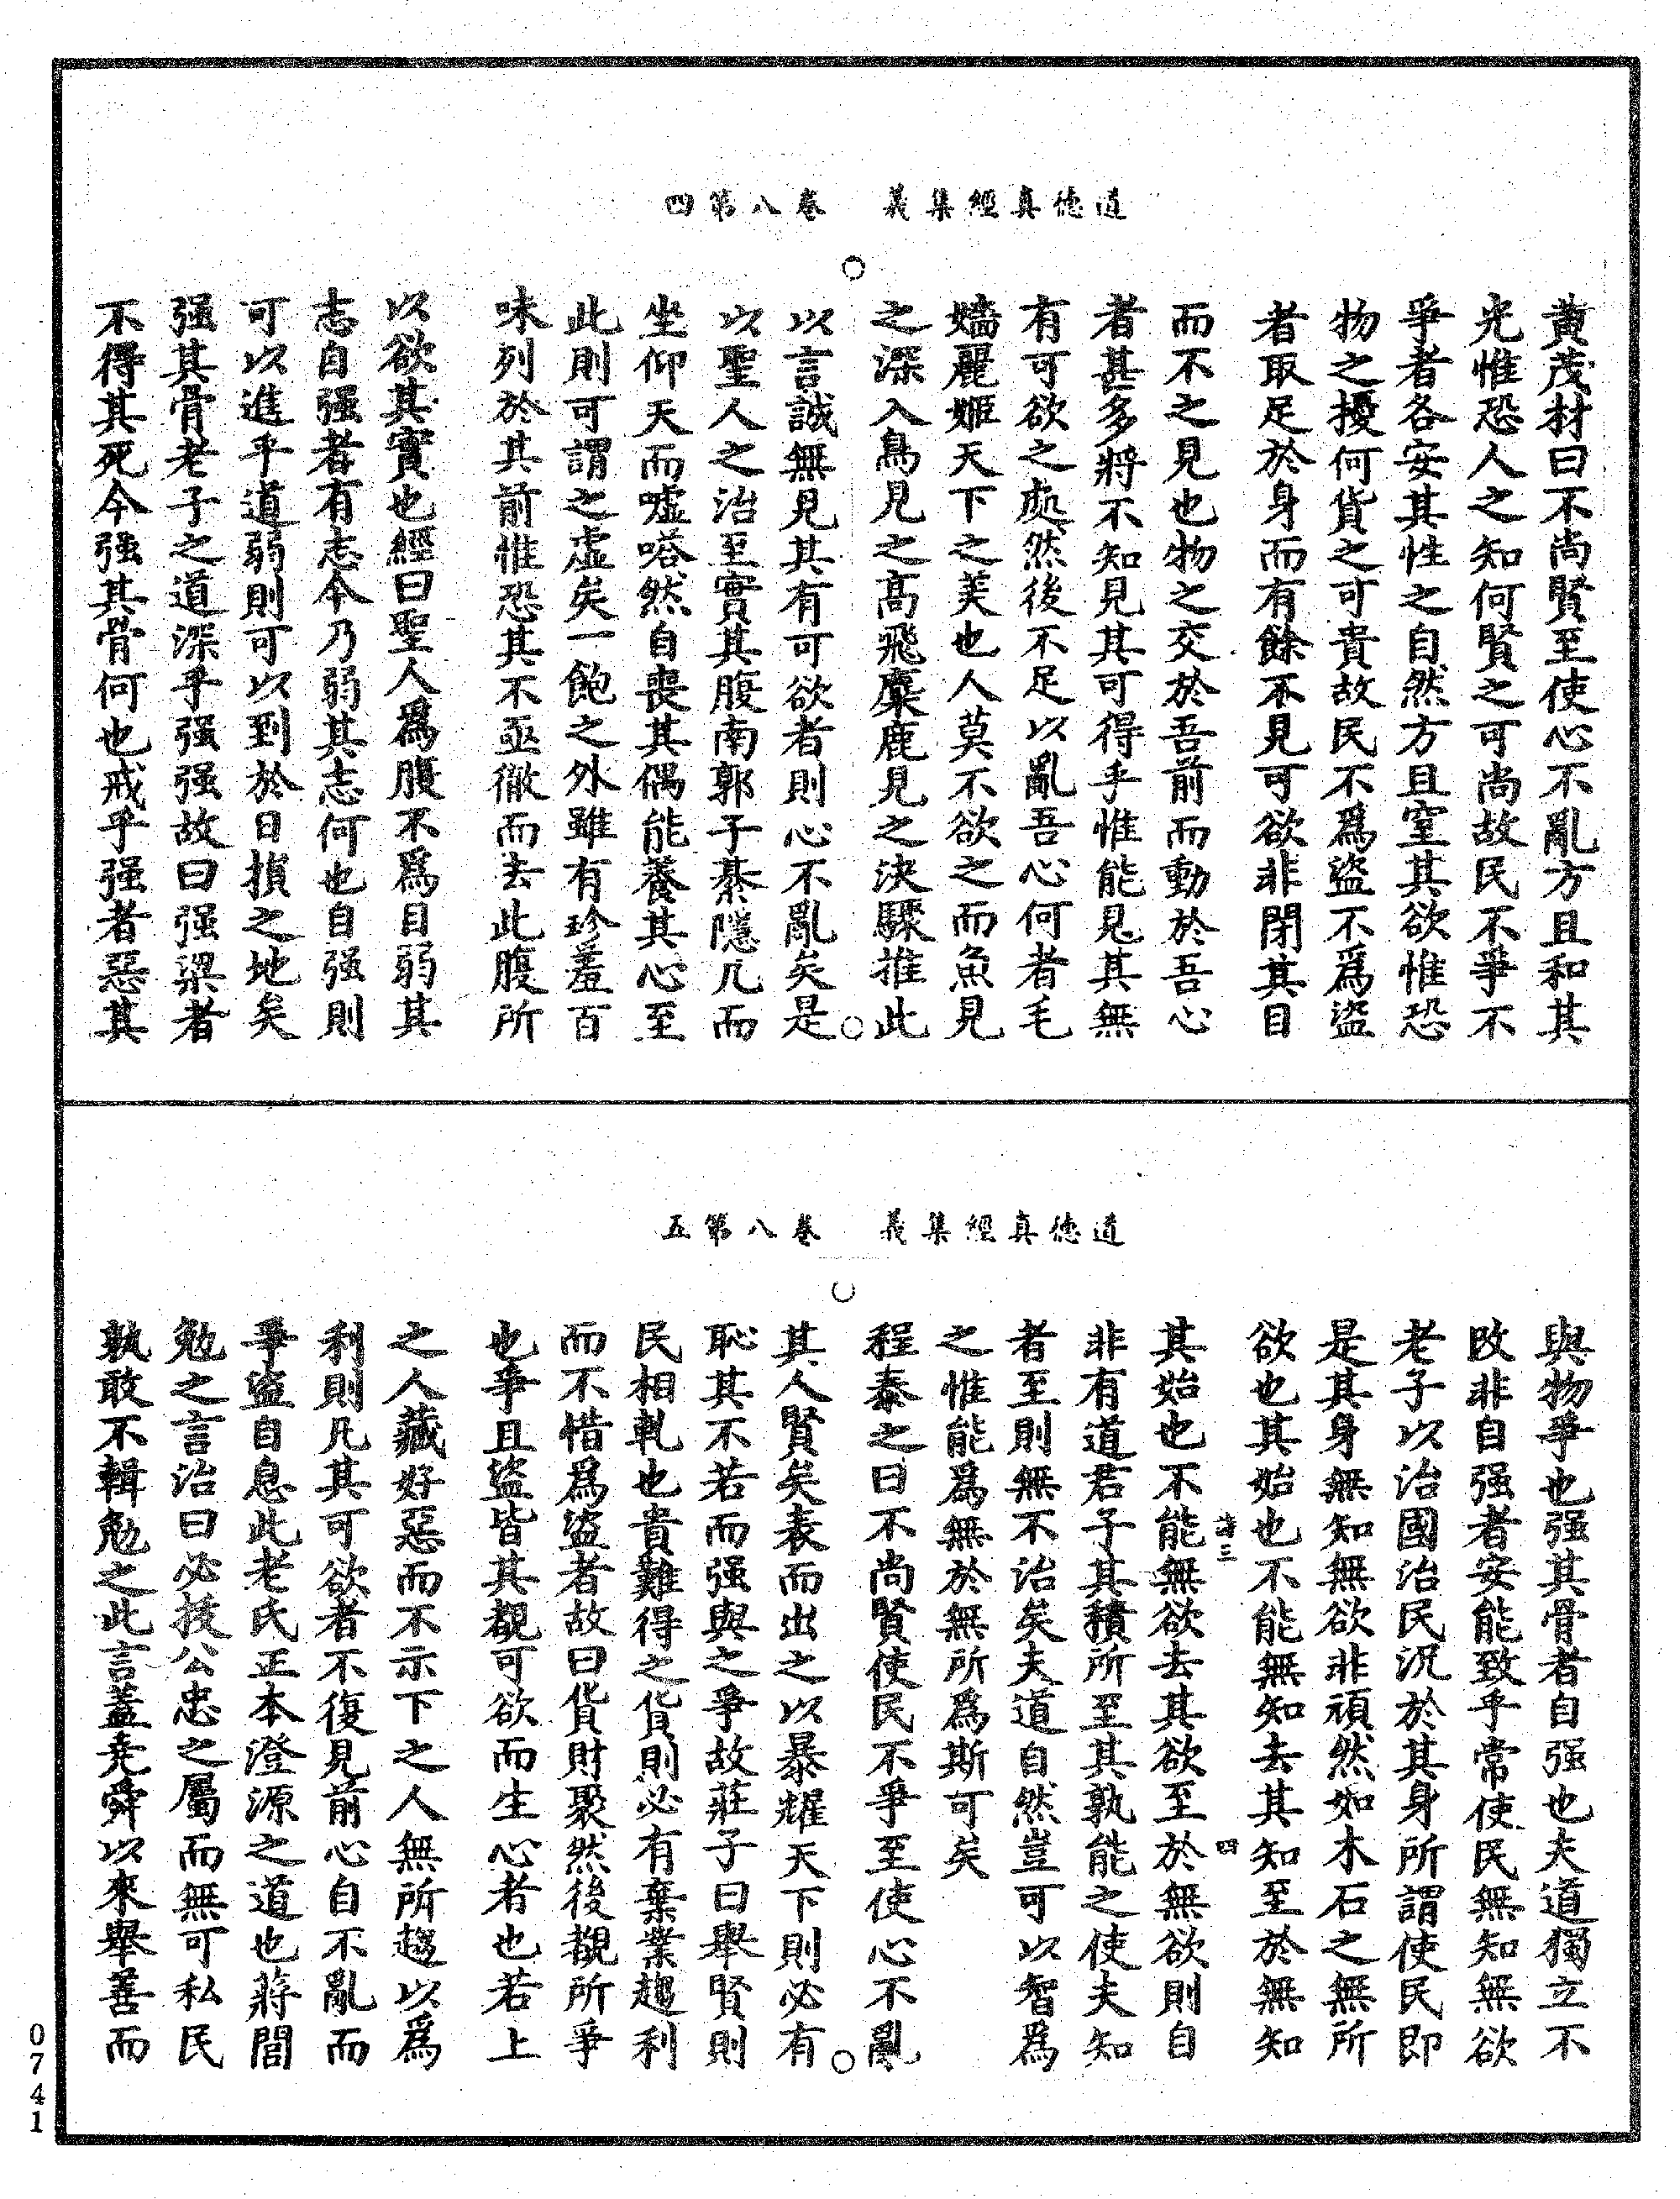 道德真經集義　卷八第四
黃茂材曰不尚賢至使心不亂方且和其
光惟恐人之知何賢之可尚故民不爭不
爭者各安其性之自然方且窒其欲惟恐
物之擾何貨之可貴故民不爲盜不爲盜
者取足於身而有餘不見可欲非閉其目
而不之見也物之交於吾前而動於吾心
者甚多將不知見其可得乎惟能見其無
有可欲之處然後不足以亂吾心何者毛
嬙麗姬天下之美也人莫不欲之而魚見
之深入鳥見之高飛麋鹿見之決驟推此
以言誠無見其有可欲者則心不亂矣是
以聖人之治至實其腹南郭子綦隱几而
坐仰天而噓嗒然自喪其偶能養其心至
此則可謂之虛矣一飽之外雖有珍羞百
味列於其前惟恐其不亟徹而去此腹所
以欲其實也經曰聖人爲腹不爲目弱其
志自强者有志今乃弱其志志何也自强則
可以進乎道弱則可以到於日損之地矣
强其骨老子之道深乎强强故曰强梁者
不得其死今强其骨何也戒乎强者惡其
道德真經集義　卷八第五
與物爭也强其骨者自强也夫道獨立不
改非自强者安能致乎常使民無知無欲
老子以治國治民況於其身所謂使民即
是其身無知無欲非頑然如木石之無所
欲也其始也不能無知去其知至於無知
其始也不能無欲去其欲至於無欲則自
非有道君子其積所至其孰能之使夫知
者至則無不治矣夫道自然豈可以智爲
之惟能爲無於無所爲斯可矣
程泰之曰不尚賢使民不爭至使心不亂
其人賢矣表而出之以暴耀天下則必有
恥其不若而强與之爭故莊子曰舉賢則
民相軋也貴難得之貨則必有棄業趨利
而不惜爲盜者故曰貨財聚然後覩所爭
也爭且盜皆其覩可欲而生心者也若上
之人藏好惡而不示下之人無所趨以爲
利則凡其可欲者不復見前心自不亂而
爭盜自息此老氏正本澄源之道也蔣閭
勉之言治曰必拔公忠之屬而無可私民
孰敢不輯勉之此言蓋堯舜以來舉善而
三
四
0741